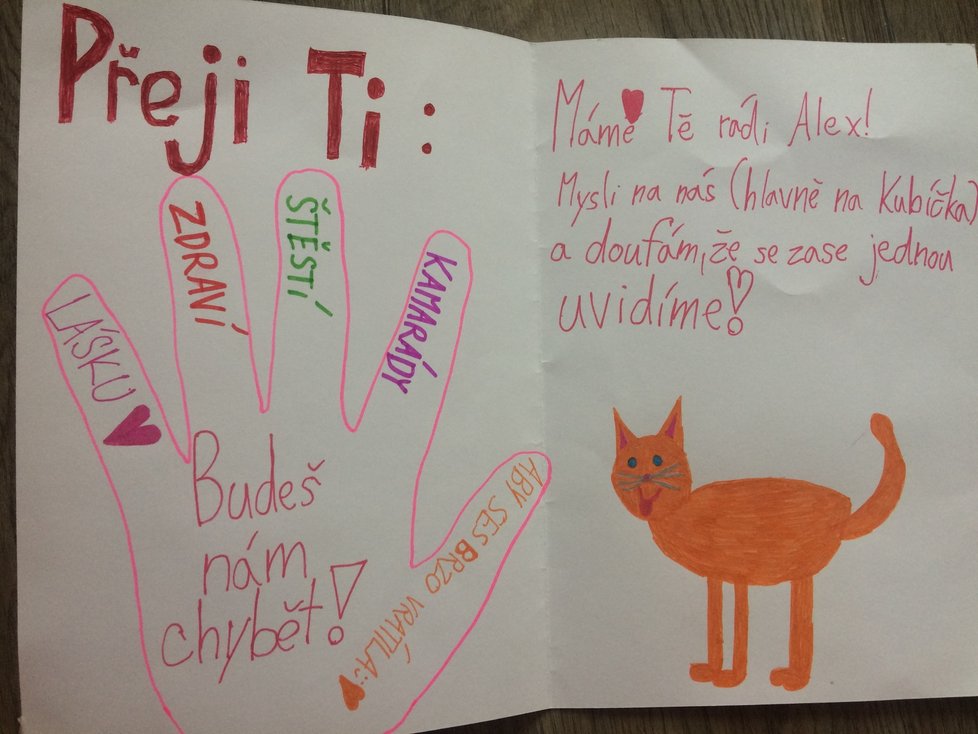 Přeji Ti:
LÁSKU
ZDRAVÍ
ŠTĚSTÍ
KAMARÁDY
ABY SES BRZO VRÁTILA:
Budeš
nám
chybět!
Máme Tě rádi Alex!
Mysli na nás (hlavně na Kubíčka)
a doufám, že se zase jednou
uvidíme!